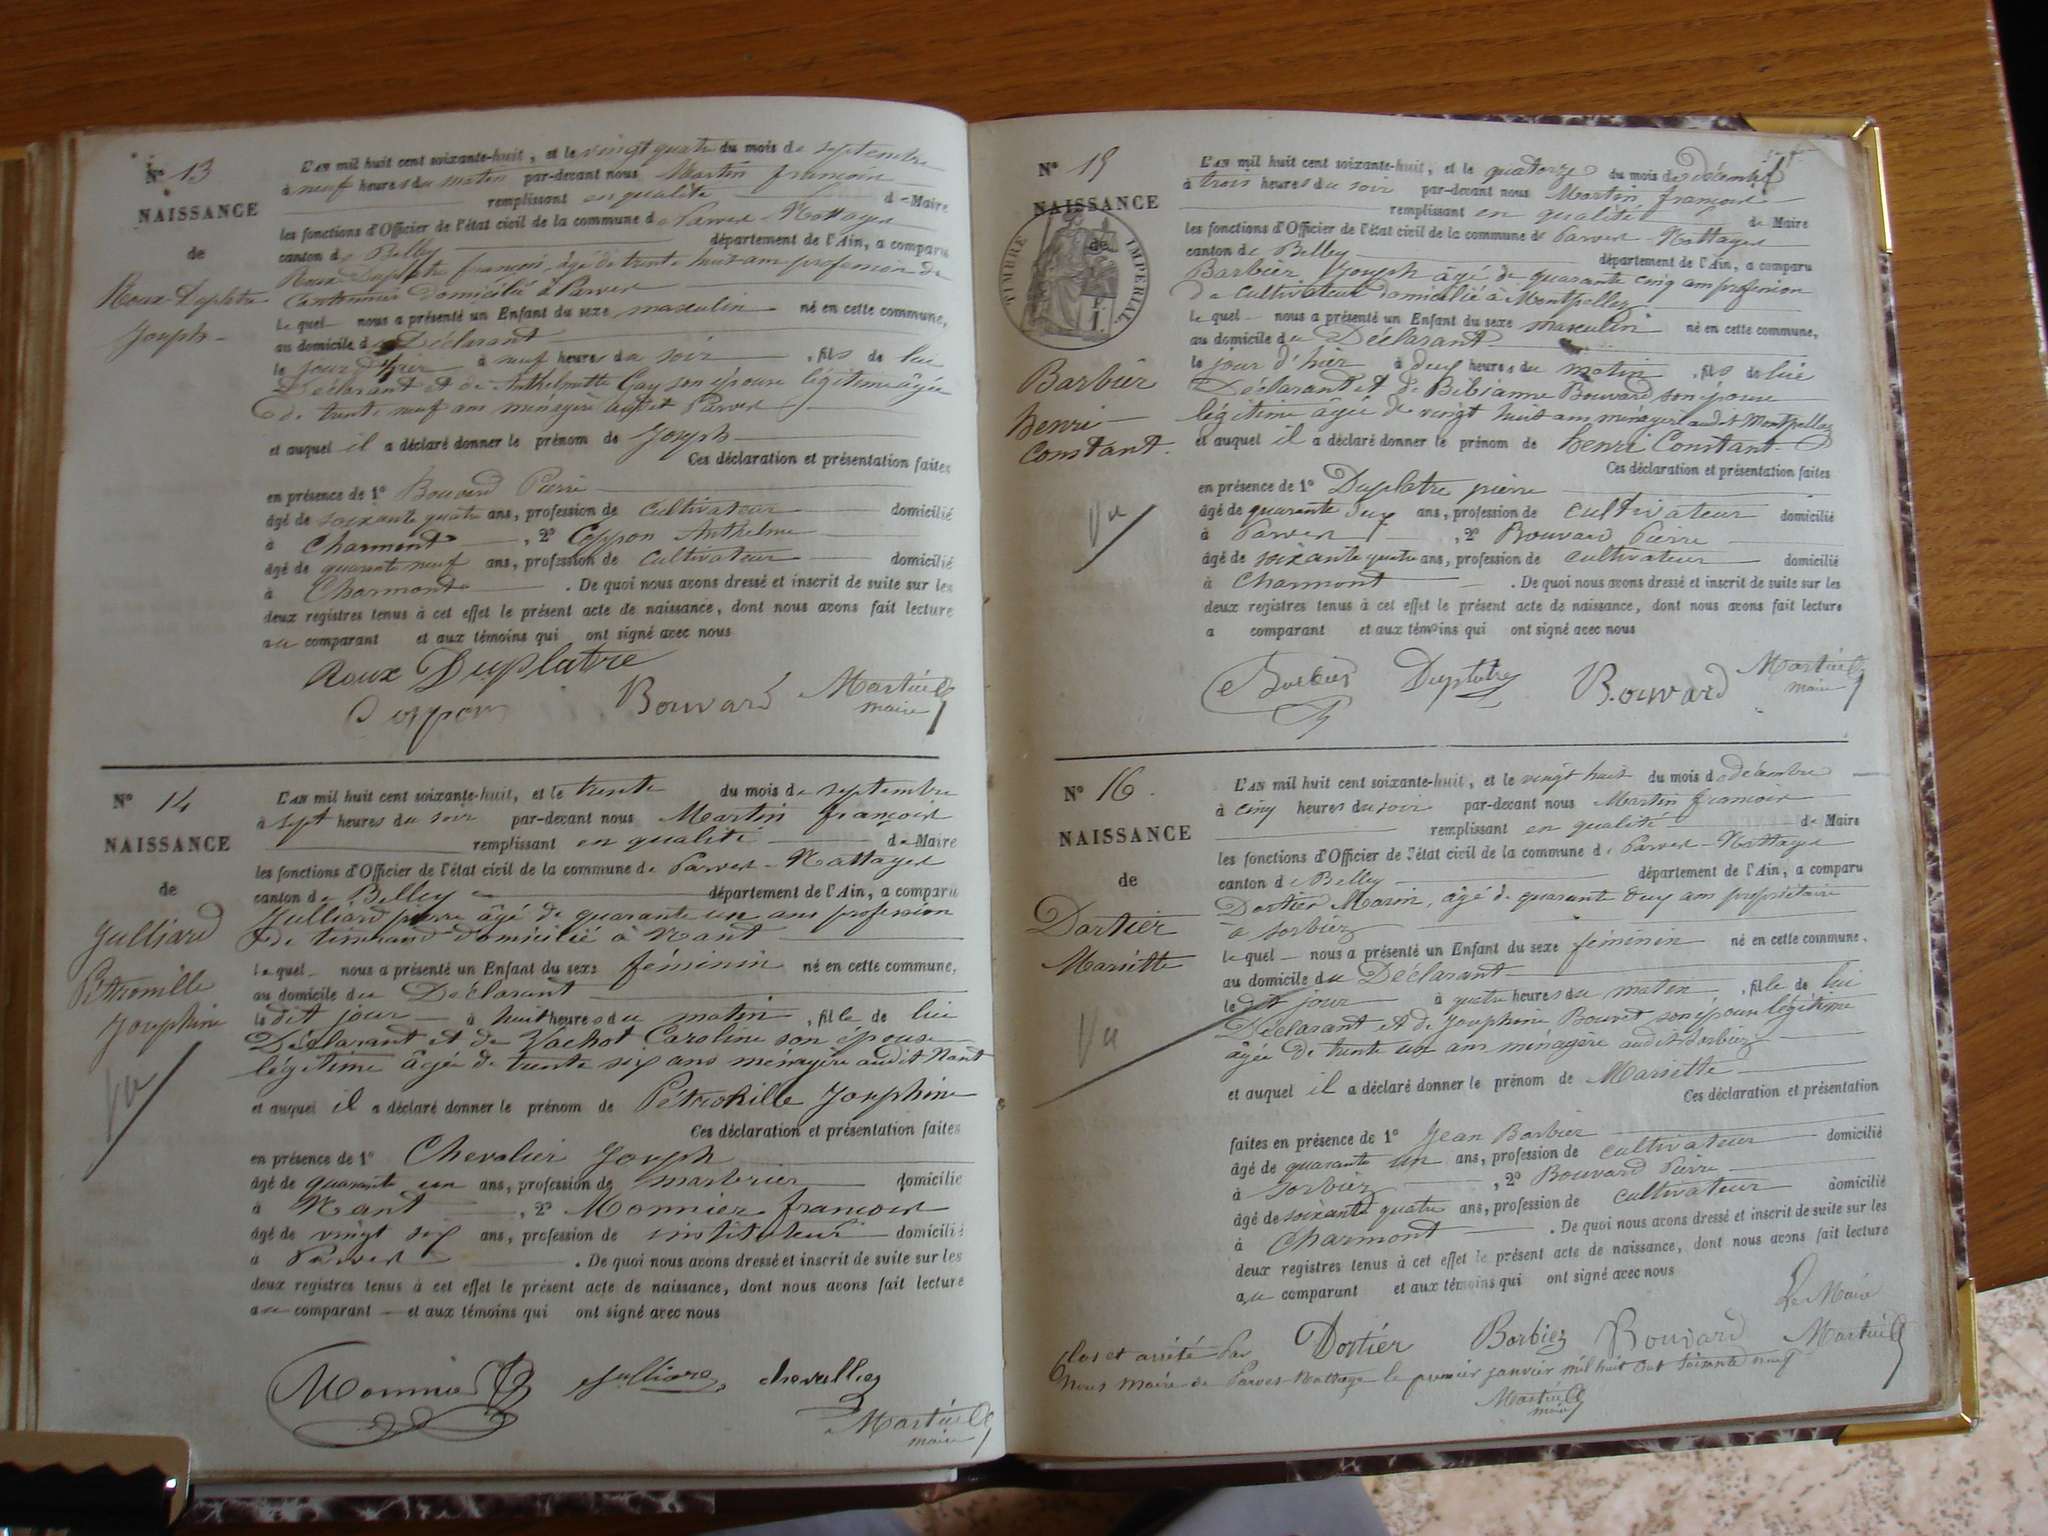 N° 13
NAISSANCE
de
Roux Duplatre
Joseph
L'AN mil huit cent soixante-huit, et le vingt quatre du mois de septembre
à neuf heures du matin par-devant nous Martin françois
remplissant en qualité de Maire
les fonctions d'Officier de l'état civil de la commune de Parves-Nattages
canton de Belley département de l'Ain, a comparu
Roux Duplatre françois, âgé de trente huit ans profession de
Cantonnier domicilié à Parves
lequel nous a présenté un Enfant du sexe masculin né en cette commune,
au domicile du Déclarant
le jour d'hier à neuf heures du soir, fils de lui
Déclarant et de Anthelmette Gay son épouse légitime âgée
de trente neuf ans ménagère audit Parves
et auquel il a déclaré donner le prénom de Joseph
Ces déclaration et présentation faites
en présence de 1° Bouvard Pierre
âgé de soixante quatre ans, profession de cultivateur domicilié
à Charmont, 2° Coppon Anthelme
âgé de quarante neuf ans, profession de cultivateur domicilié
à Charmont. De quoi nous avons dressé et inscrit de suite sur les
deux registres tenus à cet effet le présent acte de naissance, dont nous avons fait lecture
au comparant et aux témoins qui ont signé avec nous
Roux Duplatre
Coppon Bouvard Martin
maire
N° 14
NAISSANCE
de
Julliard
Pétronille
Joséphine
Vu
L'AN mil huit cent soixante-huit, et le trente du mois de septembre
à sept heures du soir par-devant nous Martin françois
remplissant en qualité de Maire
les fonctions d'Officier de l'état civil de la commune de Parves-Nattages
canton de Belley département de l'Ain, a comparu
Julliard pierre âgé de quarante un ans profession
de domicilié à Nant
lequel nous a présenté un Enfant du sexe féminin né en cette commune,
au domicile du Déclarant
le dit jour à huit heures du matin, fille de lui
Déclarant et de Vachot Caroline son épouse
légitime âgée de trente six ans ménagère audit Nant
et auquel il a déclaré donner le prénom de Pétronille Joséphine
Ces déclaration et présentation faites
en présence de 1° Chevalier Joseph
âgé de quarante un ans, profession de marbrier domicilié
à Nant, 2° Monnier françois
âgé de vingt six ans, profession de instituteur domicilié
à Parves. De quoi nous avons dressé et inscrit de suite sur les
deux registres tenus à cet effet le présent acte de naissance, dont nous avons fait lecture
au comparant et aux témoins qui ont signé avec nous
Monnier Julliard chevallier
Martin
maire
N° 15
NAISSANCE
de
TIMBRE IMPÉRIAL
Barbier
henri
Constant
Vu
L'AN mil huit cent soixante-huit, et le quatorze du mois de décembre
à trois heures du soir par-devant nous Martin françois
remplissant en qualité de Maire
les fonctions d'Officier de l'état civil de la commune de Parves-Nattages
canton de Belley département de l'Ain, a comparu
Barbier Joseph âgé de quarante cinq ans profession
de cultivateur domicilié à Montpellaz
lequel nous a présenté un Enfant du sexe masculin né en cette commune,
au domicile du Déclarant
le jour d'hier à deux heures du matin, fils de lui
Déclarant et de Bibianne Bouvard son épouse
légitime âgée de vingt huit ans ménagère audit Montpellaz
et auquel il a déclaré donner le prénom de henri Constant
Ces déclaration et présentation faites
en présence de 1° Duplatre pierre
âgé de quarante deux ans, profession de cultivateur domicilié
à Parves, 2° Bouvard Pierre
âgé de soixante quatre ans, profession de cultivateur domicilié
à Charmont. De quoi nous avons dressé et inscrit de suite sur les
deux registres tenus à cet effet le présent acte de naissance, dont nous avons fait lecture
a comparant et aux témoins qui ont signé avec nous
Barbier Duplatre Bouvard Martin
maire
N° 16
NAISSANCE
de
Dortier
Mariette
Vu
L'AN mil huit cent soixante-huit, et le vingt huit du mois de décembre
à cinq heures du soir par-devant nous Martin françois
remplissant en qualité de Maire
les fonctions d'Officier de l'état civil de la commune de Parves-Nattages
canton de Belley département de l'Ain, a comparu
Dortier Marin, âgé de quarante deux ans propriétaire
à Sorbiez
lequel nous a présenté un Enfant du sexe féminin né en cette commune,
au domicile du Déclarant
le dit jour à quatre heures du matin, fille de lui
Déclarant et de Joséphine Bouvet son épouse légitime
âgée de trente un ans ménagère audit Sorbiez
et auquel il a déclaré donner le prénom de Mariette
Ces déclaration et présentation
faites en présence de 1° Jean Barbier
âgé de quarante un ans, profession de cultivateur domicilié
à Sorbiez, 2° Bouvard Pierre
âgé de soixante quatre ans, profession de cultivateur domicilié
à Charmont. De quoi nous avons dressé et inscrit de suite sur les
deux registres tenus à cet effet le présent acte de naissance, dont nous avons fait lecture
au comparant et aux témoins qui ont signé avec nous
Le Maire
Dortier Barbier Bouvard Martin
Clos et arrêté par
Nous Maire de Parves-Nattages le premier janvier mil huit cent soixante neuf
Martin
maire